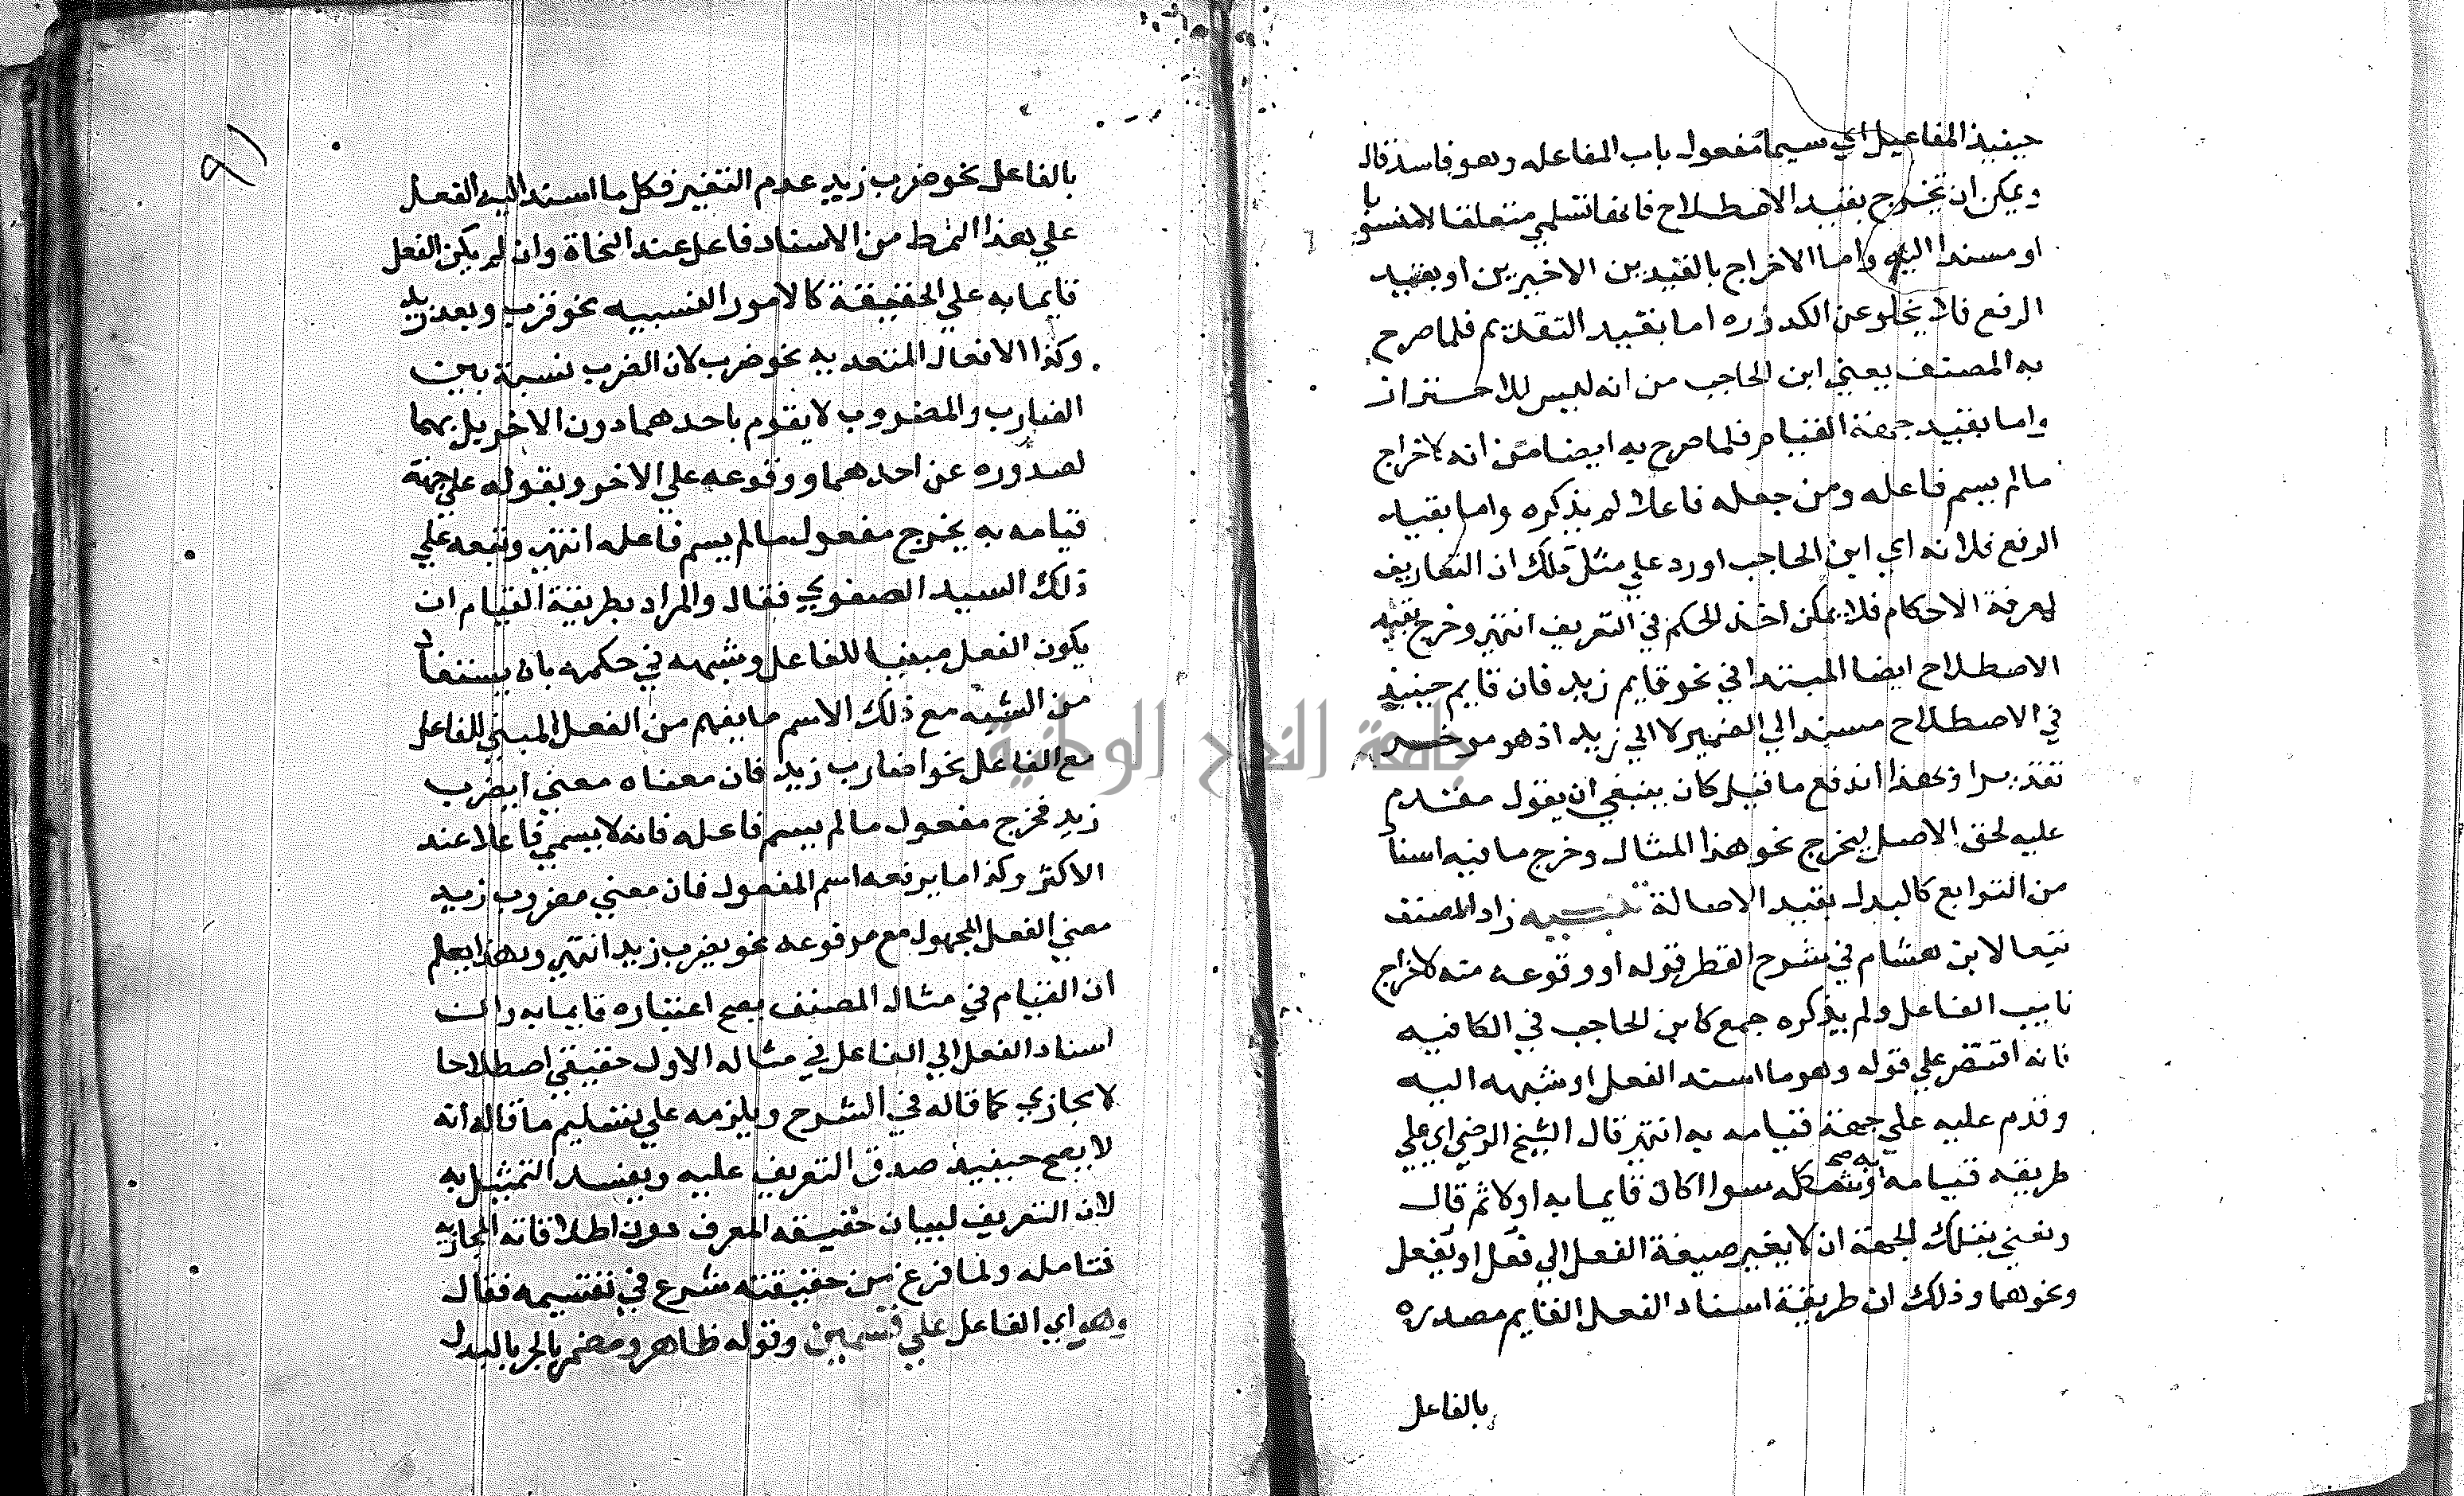 حينيذ المفاعيل اي سيما مفعول باب المفاعله وهو فاسد قال
ويمكن ان تخرج بقيد الاصطلاح فانها تسمي متعلقا لا منسوبا
او مسندا اليه واما الاخراج بالقيدين الاخيرين او بقيد
الرفع فلا يخلو عن الكدوره اما بقيد التقديم فلما صرح
به المصنف يعني ابن الحاجب من انه ليس للاحتراز
واما بقيد جهة القيام فلما صرح به ايضا من انه لاخراج
مالم يسم فاعله ومن جعله فاعلا لم يذكره واما بقيد
الرفع فلانه اي ابن الحاجب اورد علي مثل ذلك ان التعاريف
لمعرفة الاحكام فلا يمكن اخذ الحكم في التعريف انتهي وخرج بقيد
الاصطلاح ايضا المبتدا في نحو قايم زيد فان قايم حينيذ
في الاصطلاح مسند الي الضمير لا الي زيد اذ هو موخر
تقديرا وبهذا اندفع ما قيل كان ينبغي ان يقول مقدم
عليه لحق الاصل ليخرج نحو هذا المثال وخرج ما فيه اسناد
من التوابع كالبدل بقيد الاصالة تنبيه زاد المصنف
تبعا لابن هشام في شرح القطر قوله او وقوعه منه لاخراج
نايب الفاعل ولم يذكره جمع كابن الحاجب في الكافيه
فانه اقتصر علي قوله وهو ما اسند الفعل او شبهه اليه
وقدم عليه علي جهة قيامه به انتهي قال الشيخ الرضي اي علي
طريقه قيامه به صح وشكله سوا اكان قايما به اولا ثم قال
ونعني بتلك الجهة ان لا يغير صيغة الفعل الي فعل او يفعل
ونحوهما وذلك ان طريقة اسناد الفعل القايم مصدره
بالفاعل
٩١
بالفاعل نحو ضرب زيد عدم التغير فكل ما اسند اليه الفعل
علي هذا النمط من الاسناد فاعل عند النحاة وان لم يكن الفعل
قايما به علي الحقيقة كالامور النسبيه نحو قرب وبعد زيد
وكذا الافعال المتعديه نحو ضرب لان الضرب نسبة بين
الضارب والمضروب لا يقوم باحدهما دون الاخر بل بهما
لصدوره عن احدهما ووقوعه علي الاخر وبقوله علي جهة
قيامه به يخرج مفعول مالم يسم فاعله انتهي وتبعه علي
ذلك السيد الصفوي فقال والمراد بطريقة القيام ان
يكون الفعل مبنيا للفاعل وشبهه في حكمه بان يستفاد
من الشبه مع ذلك الاسم ما يفهم من الفعل المبني للفاعل
مع الفاعل نحو اضارب زيد فان معناه معني ايضرب
زيد فخرج مفعول مالم يسم فاعله فانه لا يسمي فاعلا عند
الاكثر وكذا ما يرفعه اسم المفعول فان معني مضروب زيد
معني الفعل المجهول مع مرفوعه نحو يضرب زيد انتهي وبهذا يعلم
ان القيام في مثال المصنف يصح اعتباره قايما به وان
اسناد الفعل الي الفاعل في مثاله الاول حقيقي اصطلاحا
لا مجازي كما قاله في الشرح ويلزمه علي تسليم ما قاله انه
لا يصح حينيذ صدق التعريف عليه ويفسد التمثيل به
لان التعريف لبيان حقيقه المعرف دون اطلاقاته المجازيه
فتامله ولما فرغ من حقيقته شرع في تقسيمه فقال
وهو اي الفاعل علي قسمين وقوله ظاهر ومضمر بالجر بالبدل
جامعة النجاح الوطنية